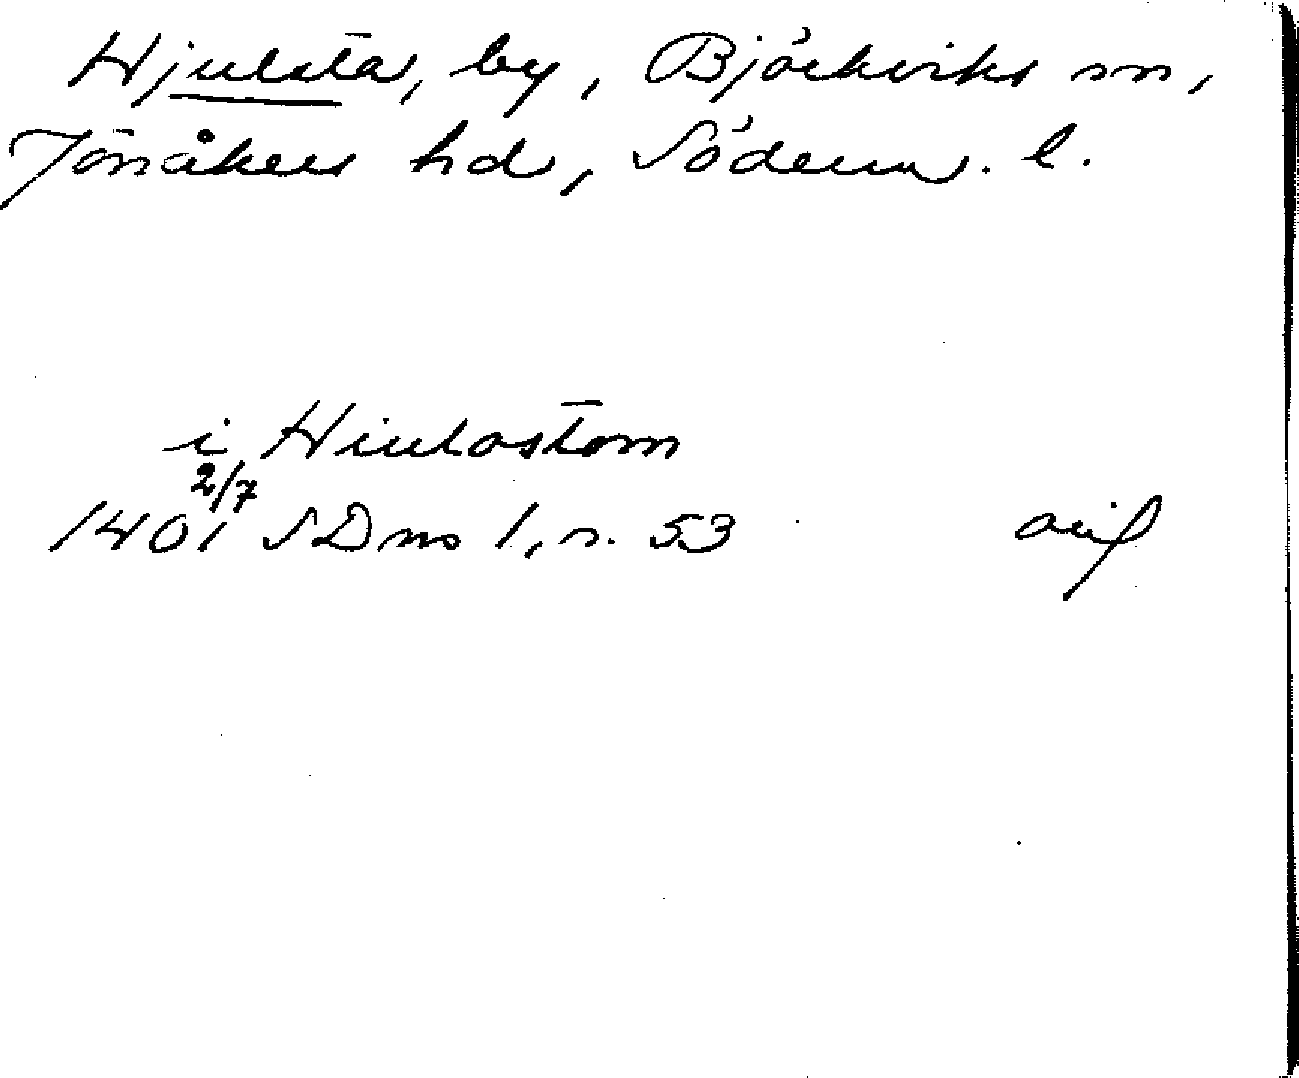 Hjulsta, by, Björkviks sn,
Jönåkers hd, Söderm. l.
i Hiulastom
2/7
1401 SDns 1, s. 53 avs